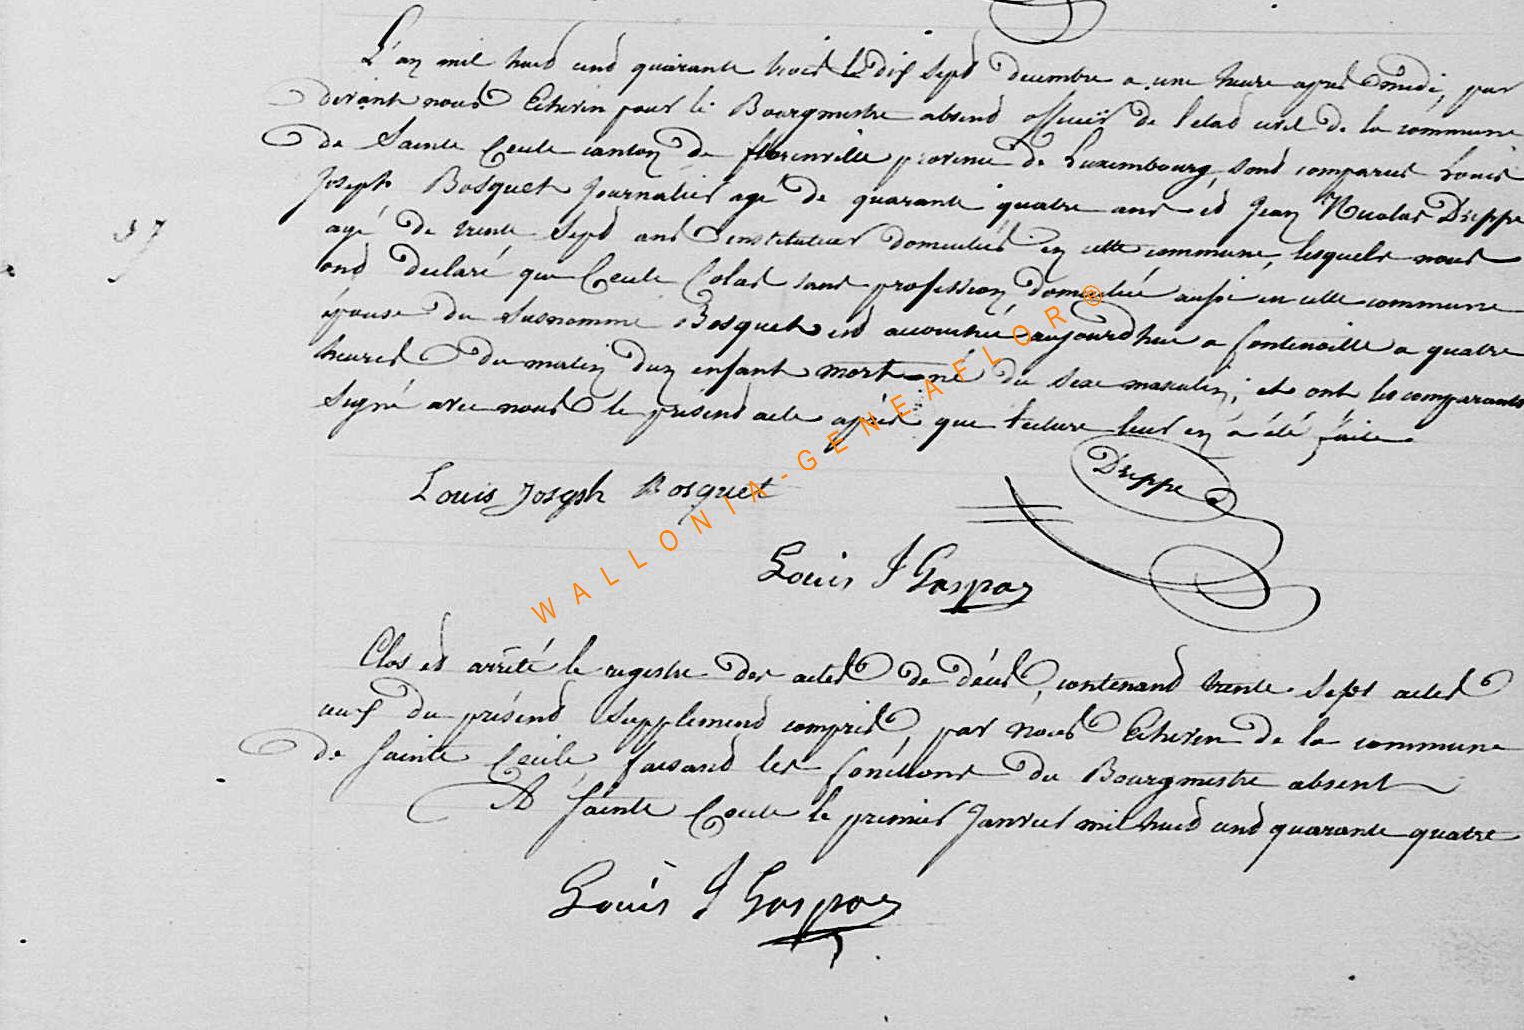 L'an mil huit cent quarante trois le dix sept decembre a une heure apres midi, par
devant nous Echevin pour le Bourgmestre absent officier de l'etat civil de la commune
de Sainte Cecile canton de florenville province de Luxembourg, sont comparus Louis
Joseph Bosquet journalier agé de quarante quatre ans et Jean Nicolas Dreppe
37
agé de trente sept ans instituteur domiciliés en cette commune, lesquels nous
ont declaré que Cecile Colas sans profession domiciliée aussi en cette commune
épouse du susnommé Bosquet est accouchée aujourdhui a fontenoille a quatre
heures du matin d'un enfant mort-né du sexe masculin; et ont les comparants
signé avec nous le présent acte après que lecture leur en a été faite.
Louis Joseph Bosquet
Dreppe
Louis J Gaspar
WALLONIA-GENEAFLOR®
Clos et arrêté le registre des actes de décès, contenant trente sept actes
du présent supplement compris, par nous Echevin de la commune
de Sainte Cecile faisant les fonctions du Bourgmestre absent
A Sainte Cecile le premier Janvier mil huit cent quarante quatre
Louis J Gaspar